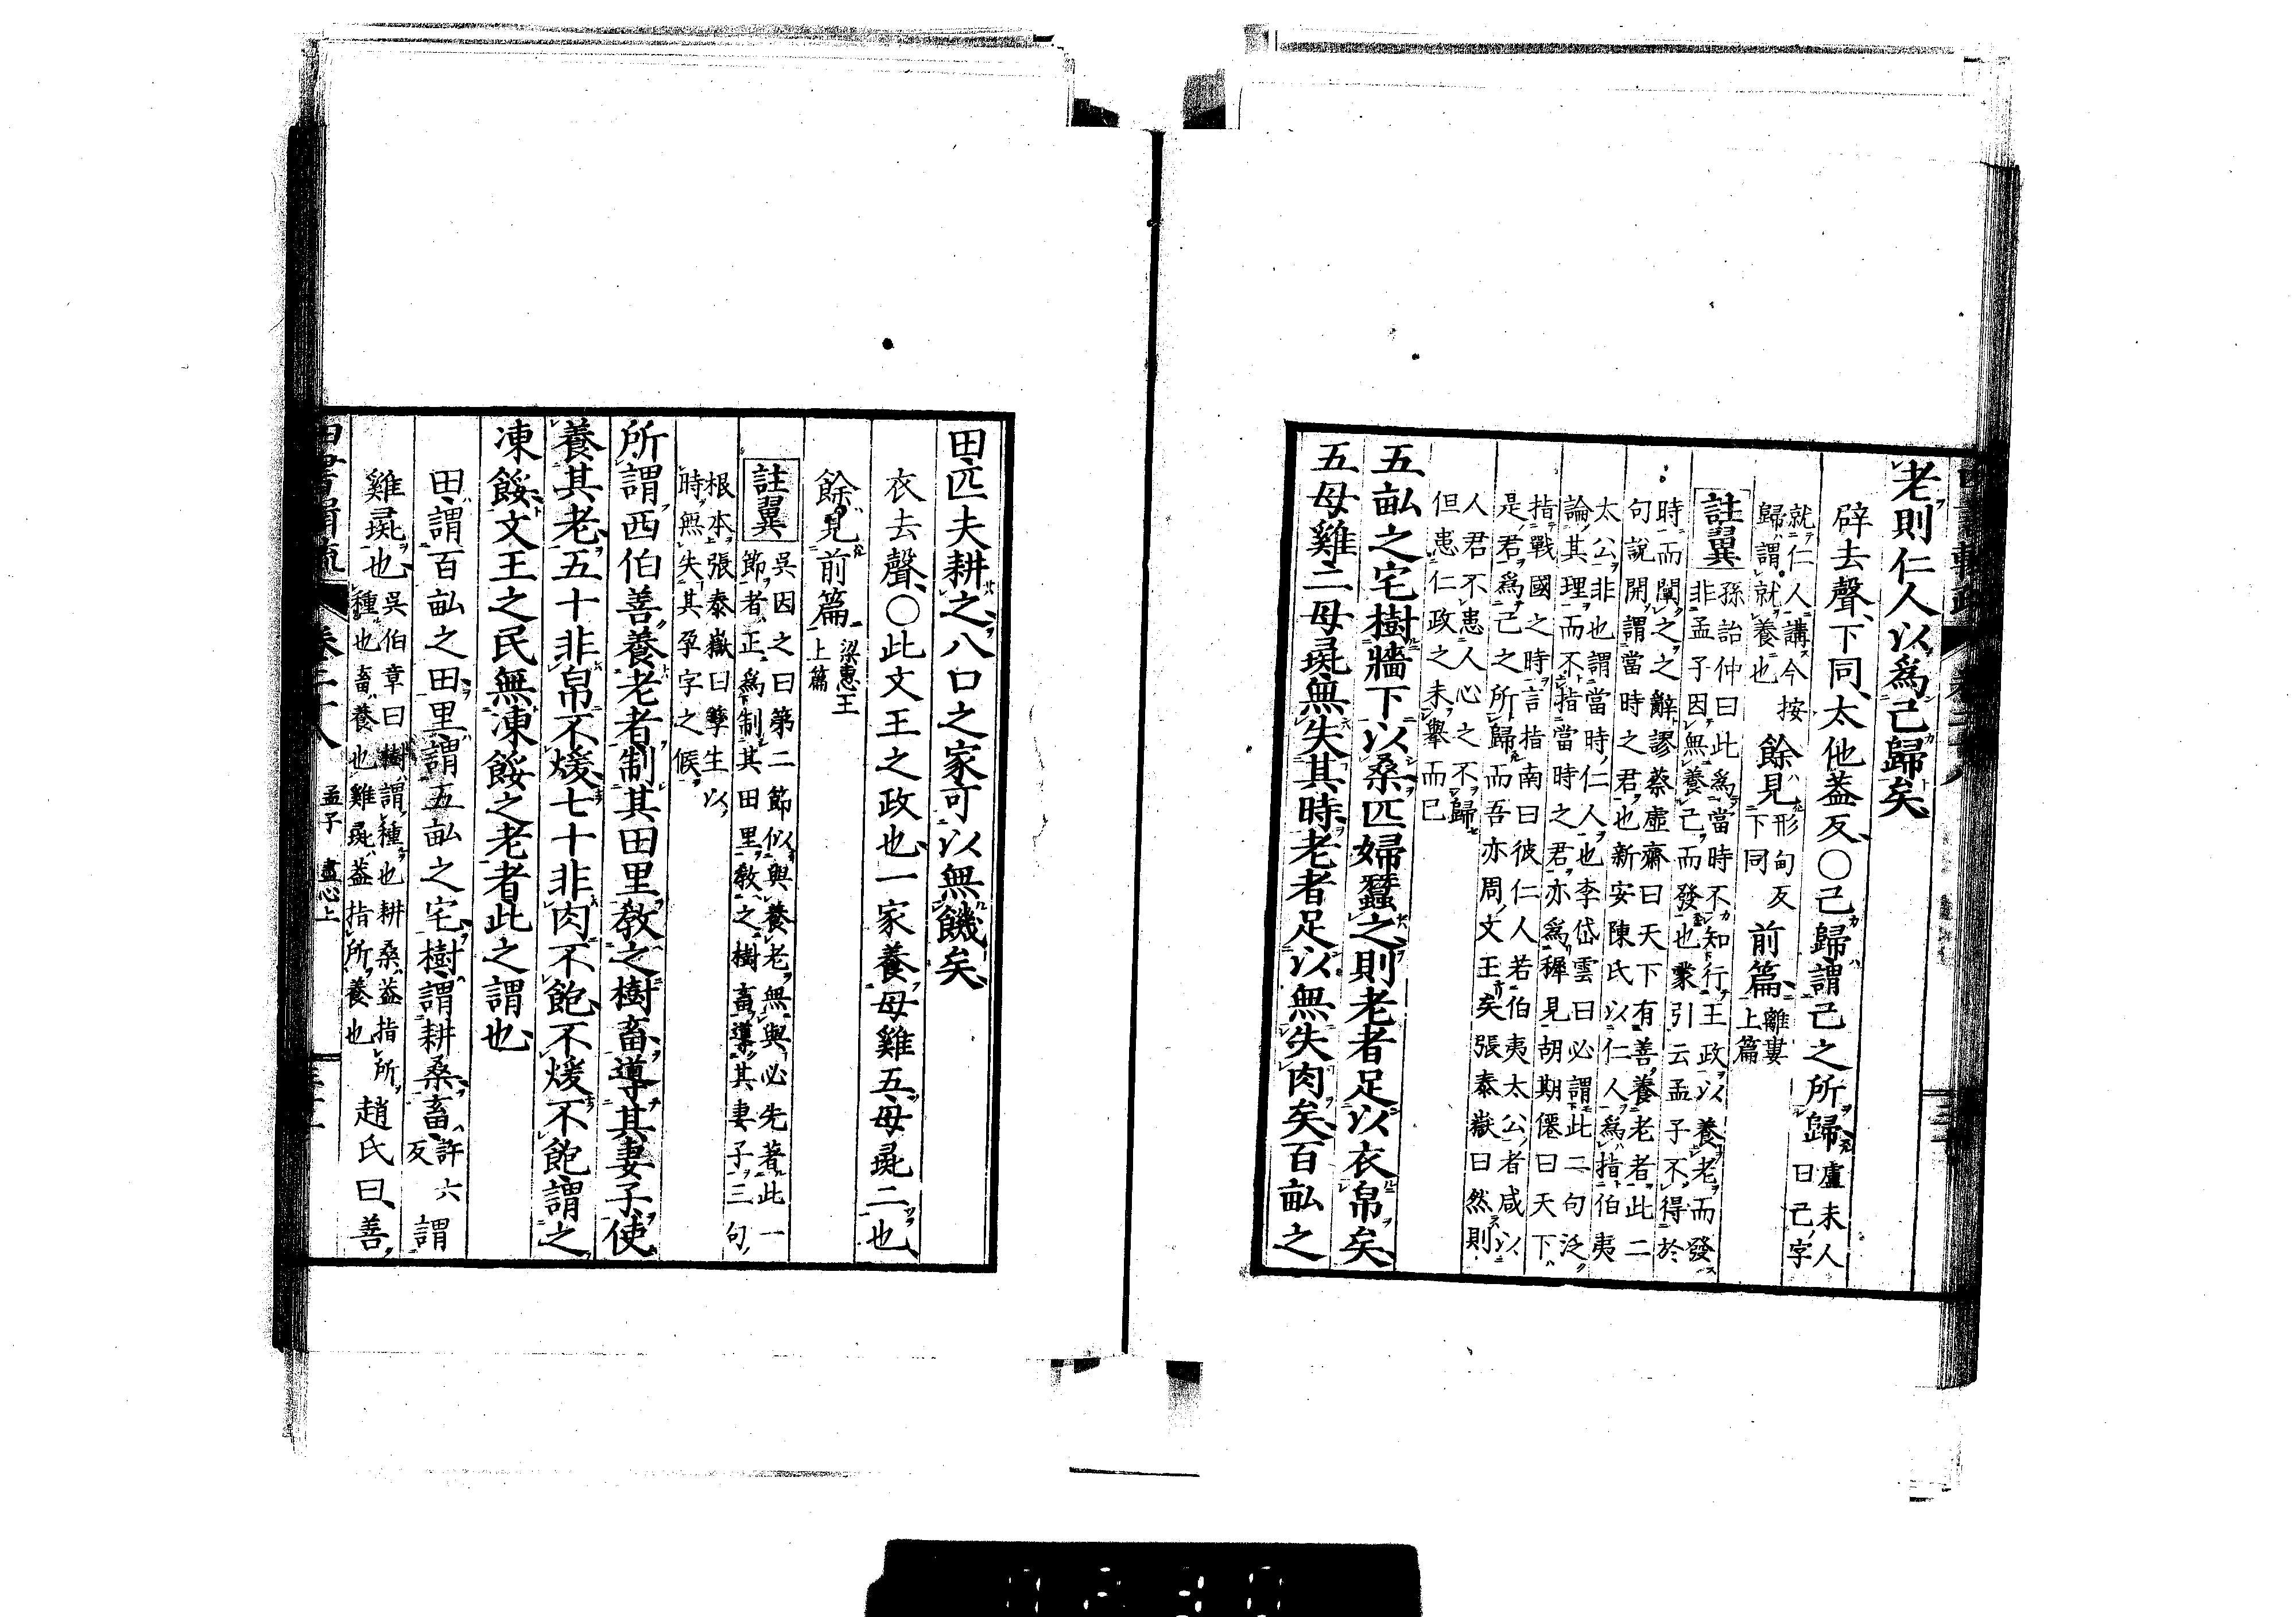 老則仁人以爲己歸矣
辟去聲下同太他蓋反○己歸謂己之所歸盧未人曰己字
就仁人講今按歸謂就養也餘見形甸反下同前篇離婁上篇
註翼孫詒仲曰此爲當時不知行王政以養老而發
非孟子因無養己而發也蒙引云孟子不得於
時而闡之之辭謬蔡虛齋曰天下有善養老者此二
句說開謂當時之君也新安陳氏以仁人爲指伯夷
太公非也謂當時仁人也李岱雲曰必謂此二句泛
論其理而不指當時之君亦爲穉見胡期僊曰天下
指戰國之時言指南曰彼仁人若伯夷太公者咸以
是君爲己之所歸而吾亦周文王矣張泰嶽曰然則
人君不患人心之不歸
但患仁政之未舉而已
五畝之宅樹牆下以桑匹婦蠶之則老者足以衣帛矣
五母雞二母彘無失其時老者足以無失肉矣百畝之
田匹夫耕之八口之家可以無饑矣
衣去聲○此文王之政也一家養母雞五母彘二也
餘見前篇梁惠王上篇
註翼吳因之曰第二節似與養老無與必先著此一
節者正爲制其田里教之樹畜導其妻子三句
根本張泰嶽曰孳生以
時無失其孕字之候
所謂西伯善養老者制其田里教之樹畜導其妻子使
養其老五十非帛不煖七十非肉不飽不煖不飽謂之
凍餒文王之民無凍餒之老者此之謂也
田謂百畝之田里謂五畝之宅樹謂耕桑畜許六反謂
雞彘也吳伯章曰樹謂種也耕桑蓋指所種也畜養也雞彘蓋指所養也趙氏曰善
孟子 盡心上